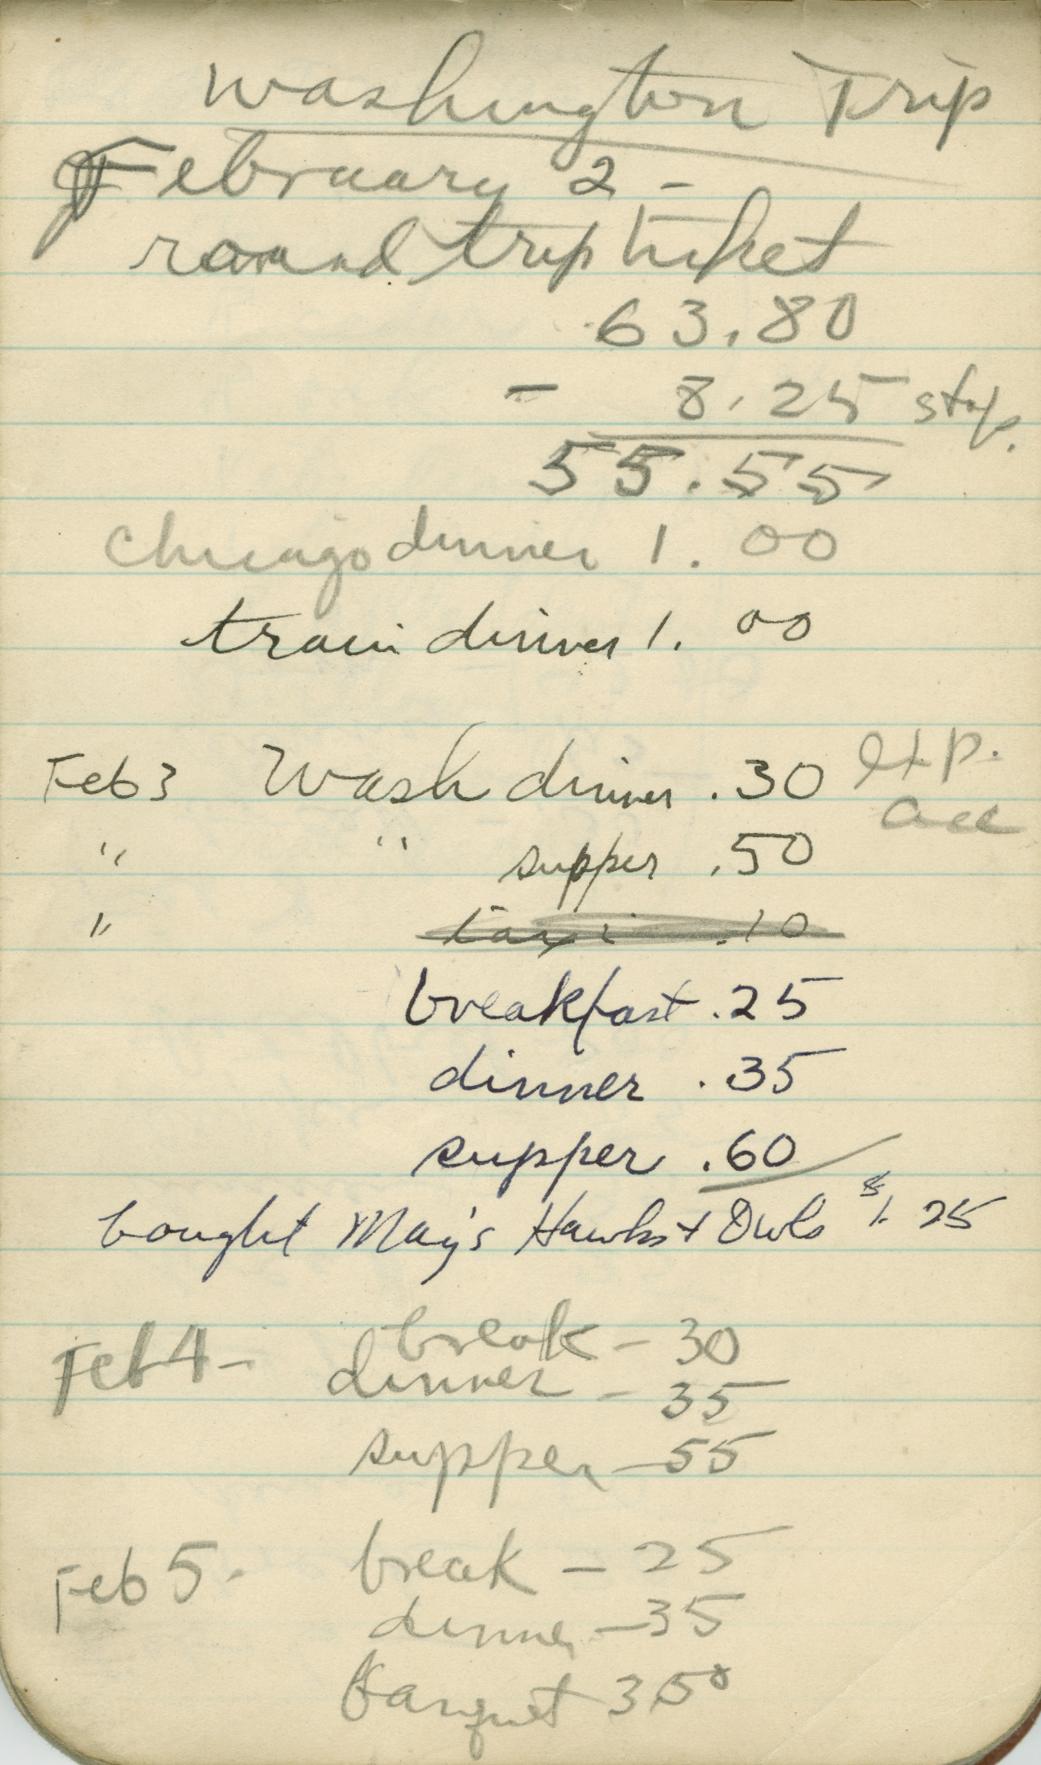 Washington Trip
February 2 -
round trip ticket
63.80
- 8.25 stop.
55.55
Chicago dinner 1.00
train dinner 1.00
Feb 3 Wash dinner .30 exp.
acc
" " supper .50
" taxi .10
breakfast .25
dinner .35
supper .60
bought May's Hawks + Owls $1.25
Feb 4 - break - 30
dinner - 35
supper - 55
Feb 5 - break - 25
dinner - 35
Banquet 3.50